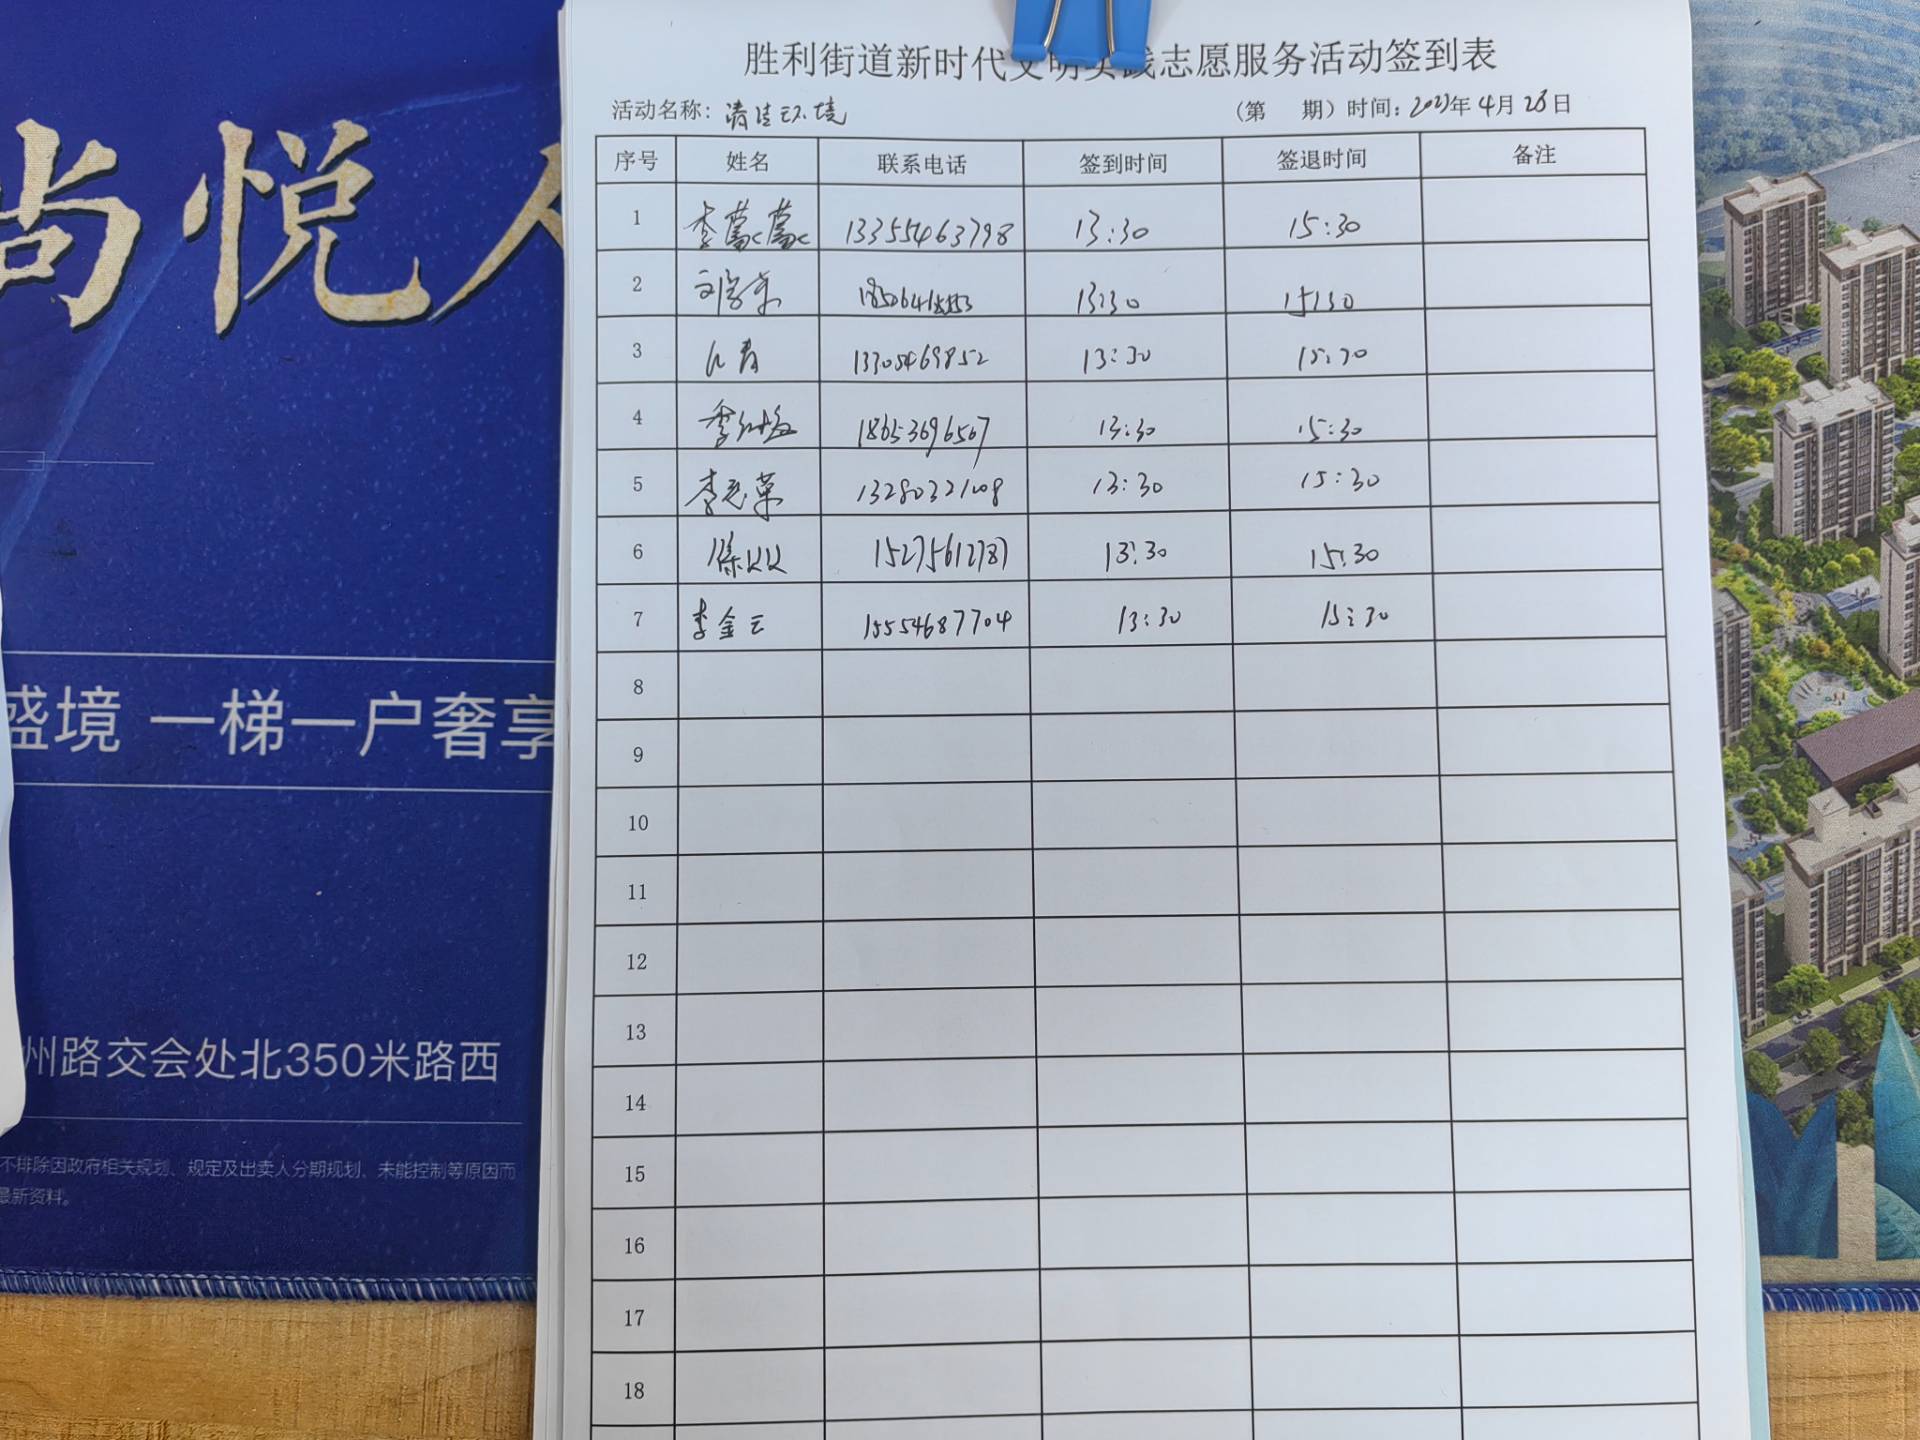 尚悦
盛境 一梯一户奢享
州路交会处北350米路西
不排除因政府相关规划、规定及出卖人分期规划、未能控制等原因而
最新资料。
胜利街道新时代文明实践志愿服务活动签到表
活动名称：清洁环境 （第 期）时间：2023年4月23日
序号 姓名 联系电话 签到时间 签退时间 备注
1 李 13355463798 13:30 15:30
2 13:30 15:30
3 13305469852 13:30 15:30
4 李红梅 18653696567 13:30 15:30
5 李 菊 13280321008 13:30 15:30
6 15275612787 13:30 15:30
7 李金云 15554687704 13:30 15:30
8
9
10
11
12
13
14
15
16
17
18